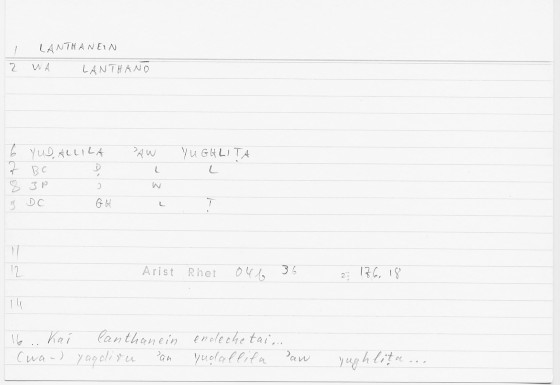 1 LANTHANEIN
2 WA LANTHANŌ
6 YUḌALLILA ʾAW YUGHLIṬA
7 BC Ḍ L L
8 JP ʾ W
9 DC GH L Ṭ
11
12 Arist Rhet 04b 36 = 176, 18
14
16 .. Kai lanthanein endechetai...
(wa-) yaqdiru ʾan yuḍallila ʾaw yughliṭa...